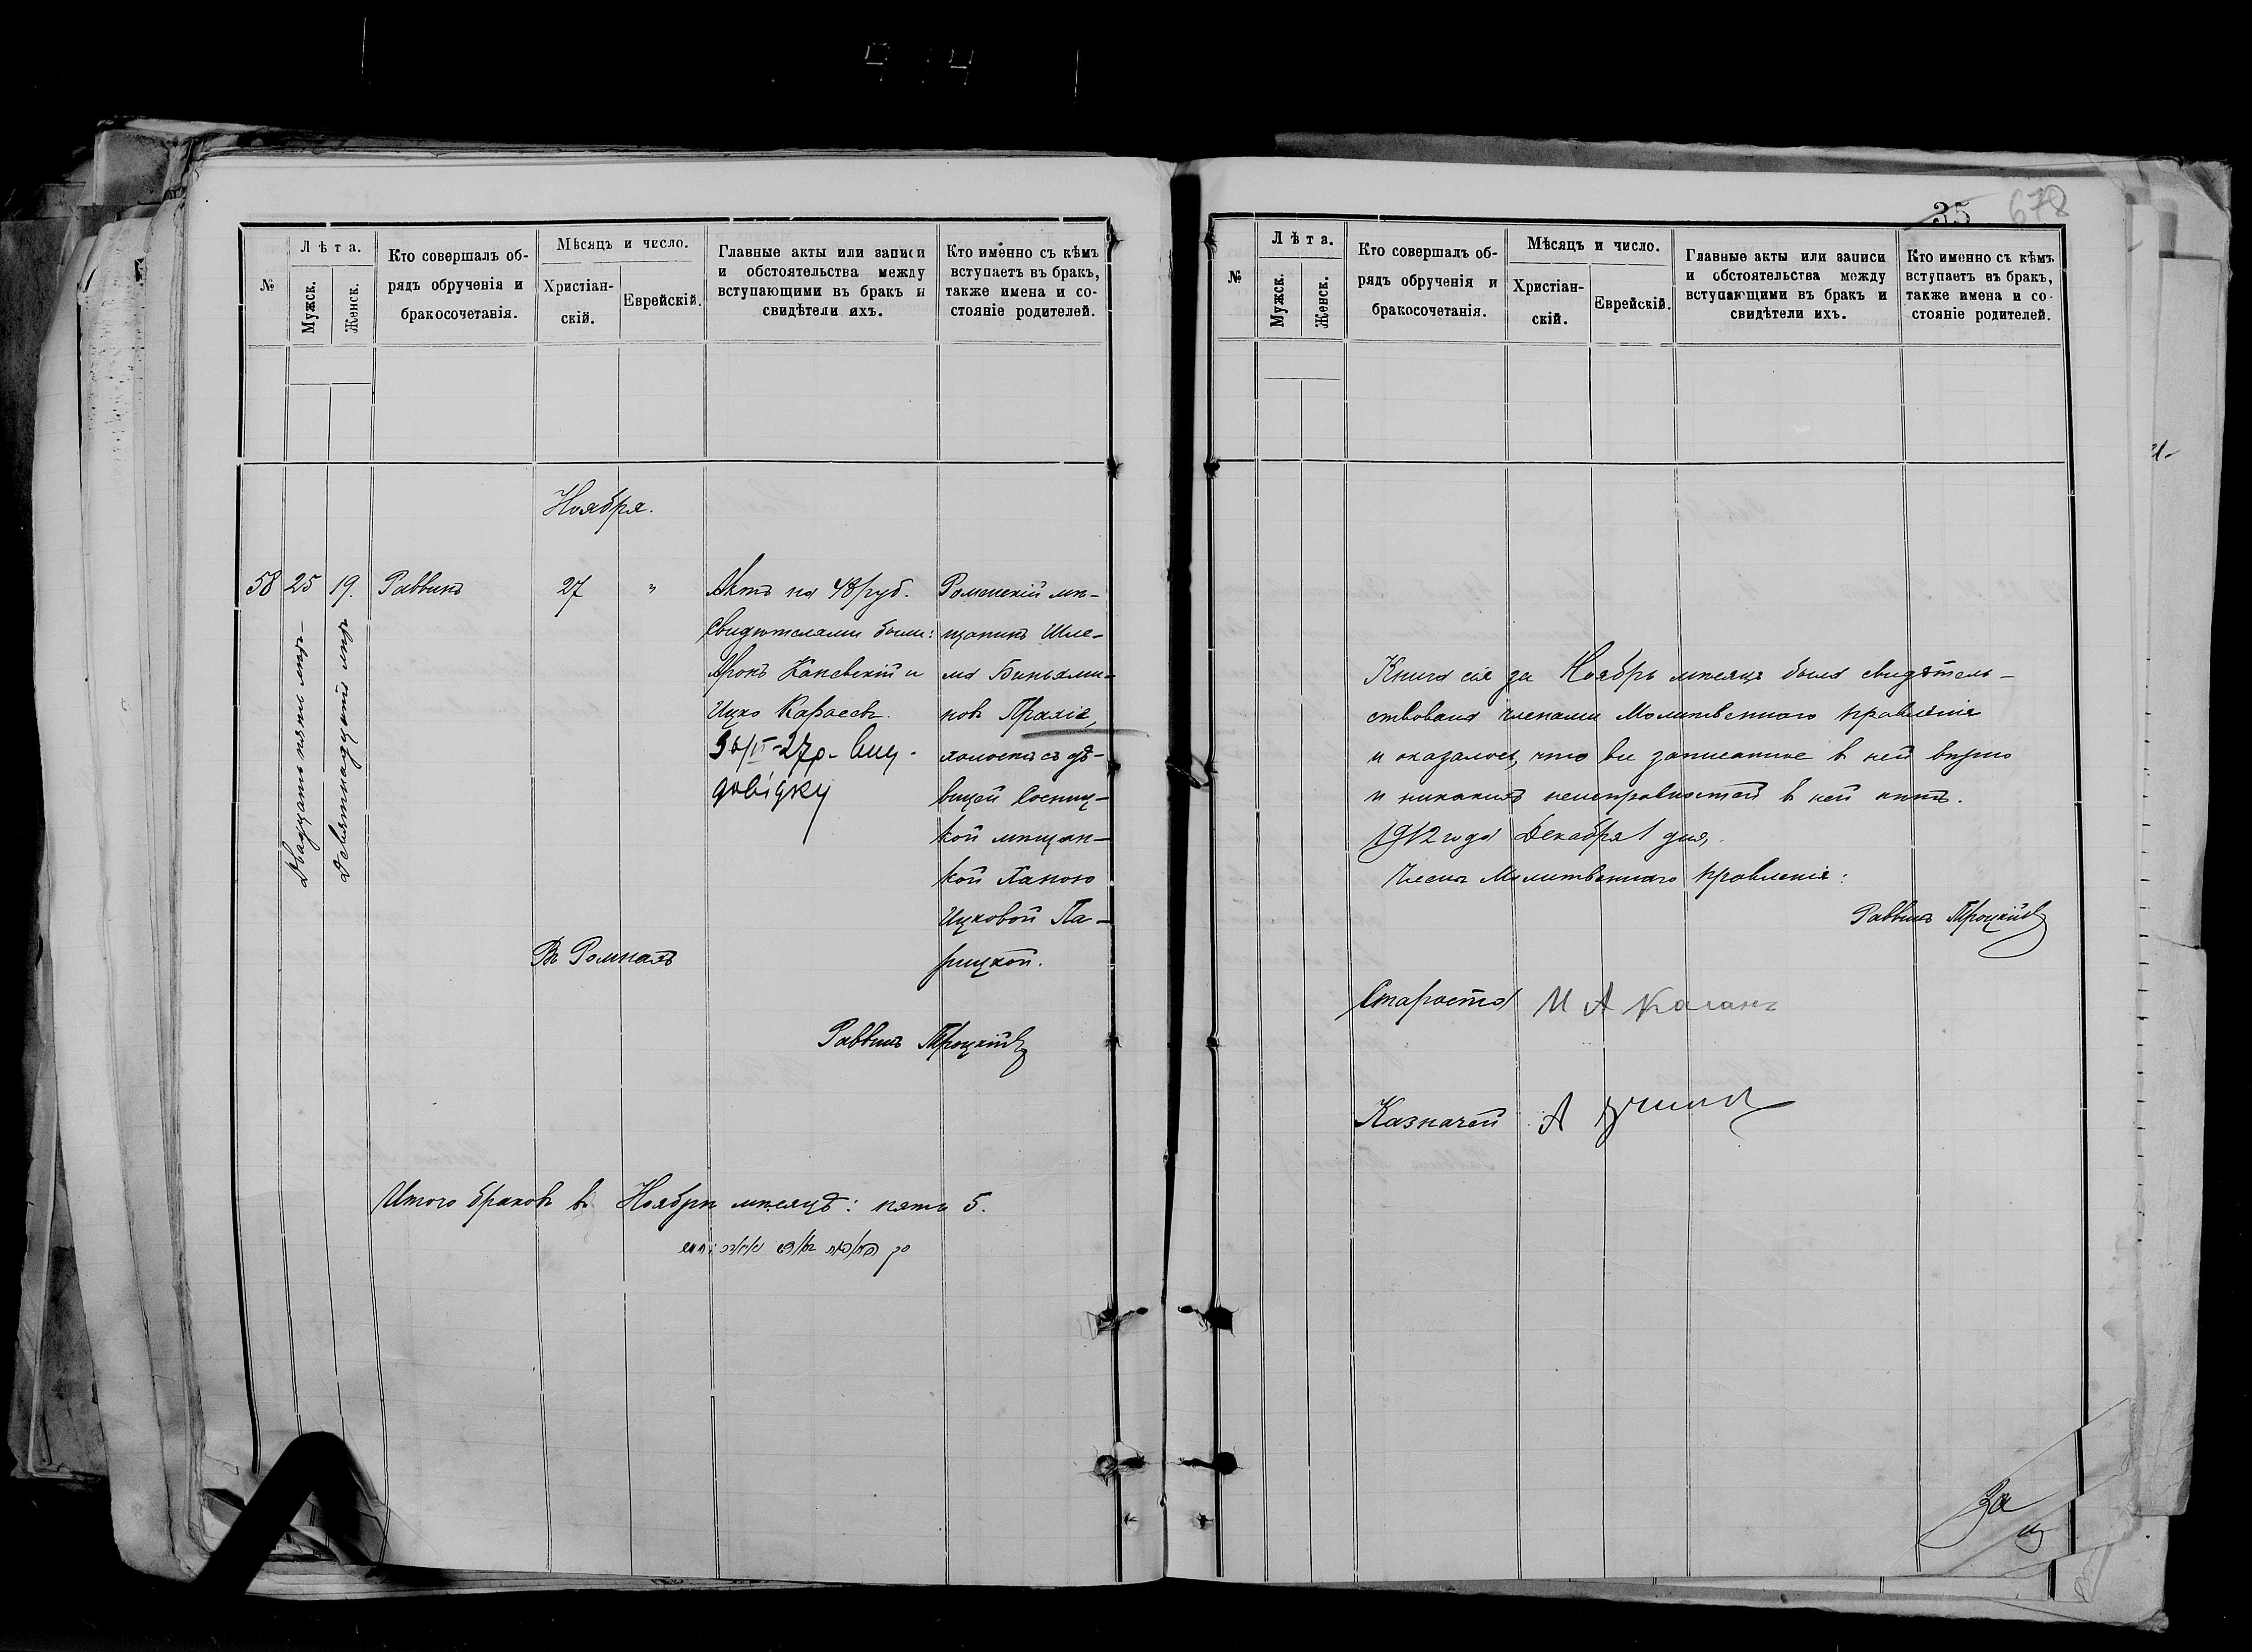 №
Лѣта.
Мужск.
Женск.
Кто совершалъ об-
рядъ обрученія и
бракосочетанія.
Мѣсяцъ и число.
Христіан-
скій.
Еврейскій.
Главные акты или записи
и обстоятельства между
вступающими въ бракъ и
свидѣтели ихъ.
Кто именно съ кѣмъ
вступаетъ въ бракъ,
также имена и со-
стояніе родителей.
Ноября.
58
25
Двадцать пять лѣтъ
19.
Девятнадцать лѣтъ
Раввинъ
27
"
Въ Ромнахъ
Актъ на 48 руб.
Свидѣтелями были:
Аронъ Каневскій и
Ицко Карасевъ.
довідку
Роменскій мѣ-
щанинъ Шле-
ма Биньями-
новъ
холостъ съ дѣ-
вицей Сосниц-
кой мѣщан-
кой Ханою
Ицковой Па-
рицкой.
Раввинъ Троцкій
Итого браковъ въ Ноябрѣ мѣсяцѣ: пять 5.
35
678
№
Лѣта.
Мужск.
Женск.
Кто совершалъ об-
рядъ обрученія и
бракосочетанія.
Мѣсяцъ и число.
Христіан-
скій.
Еврейскій.
Главные акты или записи
и обстоятельства между
вступающими въ бракъ и
свидѣтели ихъ.
Кто именно съ кѣмъ
вступаетъ въ бракъ,
также имена и со-
стояніе родителей.
Книга сія за Ноябрь мѣсяцъ была свидѣтель-
ствована членами Молитвеннаго правленія
и оказалось, что все записанное въ ней вѣрно
и никакихъ неисправностей въ ней нѣтъ.
1912 года Декабря 1 дня,
Члены Молитвеннаго правленія:
Раввинъ Троцкій
Староста И А Каганъ
Казначей А
За